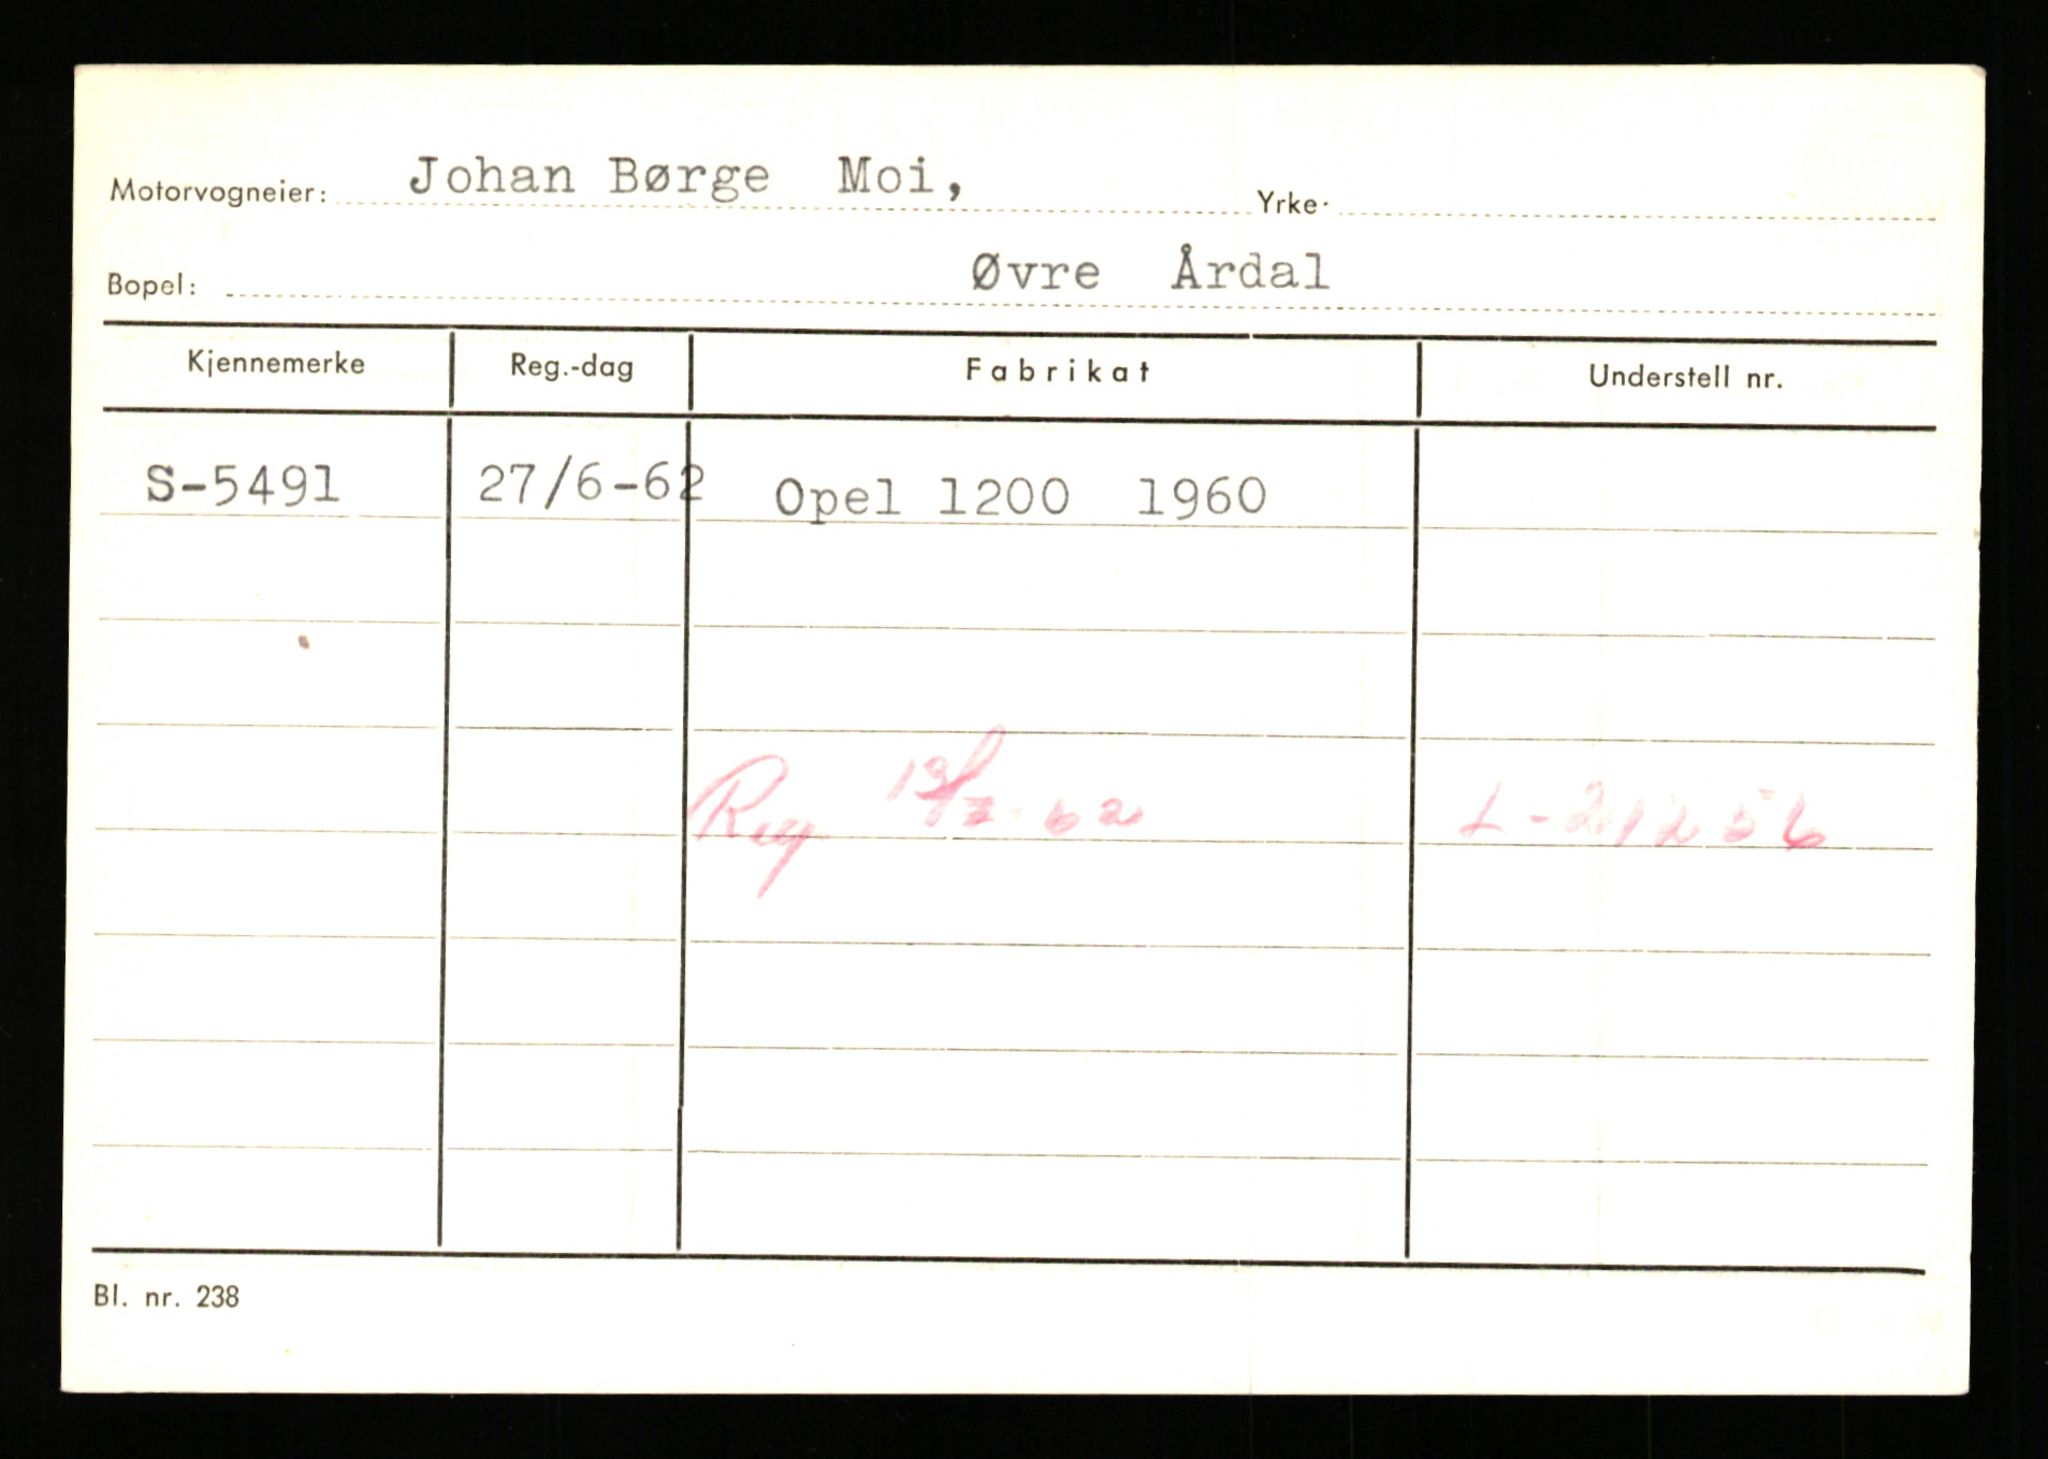 Motorvogneier: Johan Børge Moi, Yrke:
Bopel: Øvre Årdal
Kjennemerke Reg.-dag Fabrikat Understell nr.
S-5491 27/6-62 Opel 1200 1960
Reg 19/7-62 L-21256
Bl. nr. 238